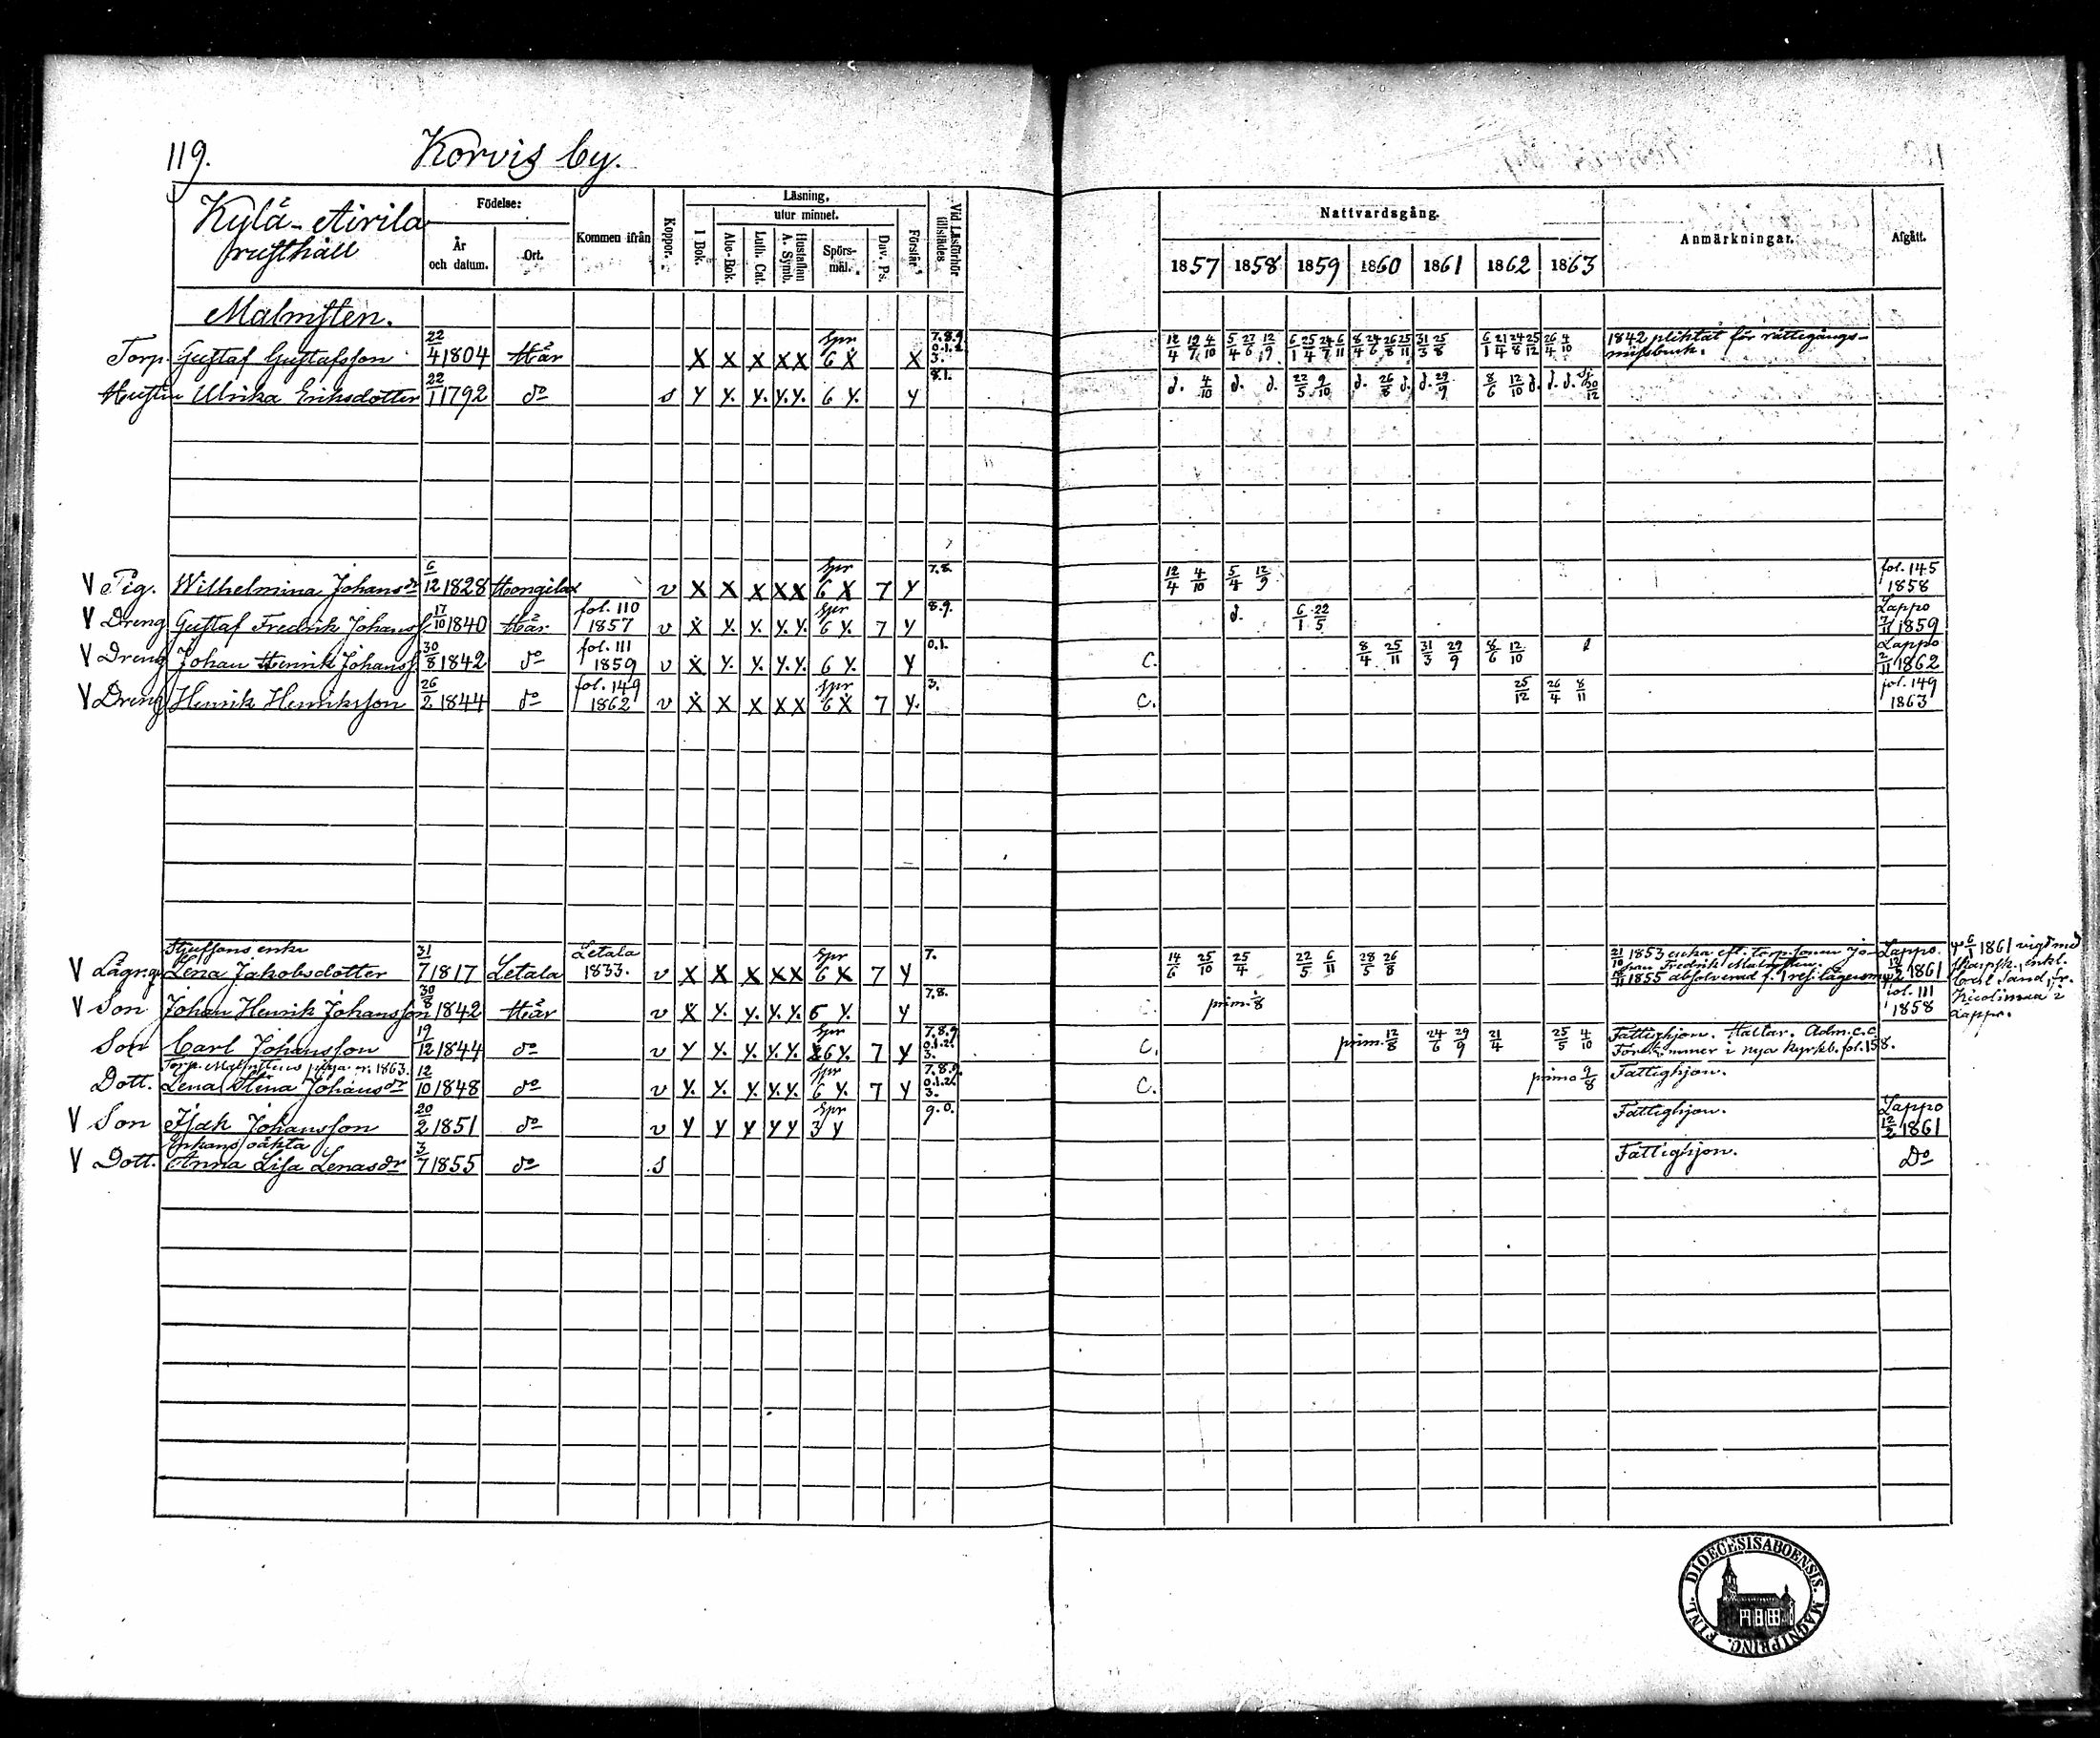 119. Korvis by.
Kylä-Airila
rusthåll
Födelse:
År
och datum.
Ort.
Kommen ifrån
Koppor.
Läsning,
utur minnet.
I Bok.
Abc-Bok.
Luth. Cat.
Hustaflan
A. Symb.
Spörs-
mål.
Dav. Ps.
Förstår
Vid Läsförhör
tillstädes
Nattvardsgång.
1857 1858 1859 1860 1861 1862 1863
Anmärkningar.
Afgått.
Malmsten.
Torp. Gustaf Gustafsson 22/4 1804 Här X X X X X Spr 6 X X 7.8.9. 0.1.2. 3. 12/4 19/7 4/10 5/4 27/6 12/9 6/1 25/4 24/7 6/11 8/4 24/6 26/8 25/11 31/3 25/8 6/1 21/4 24/8 25/12 26/4 4/10 1842 pliktat för rättegångs-
missbruk.
Hustru Ulrika Eriksdotter 22/1 1792 do s Y Y. Y. Y. Y. 6 Y. Y 8.1. d. 4/10 d. d. 22/5 9/10 d. 26/8 d. d. 29/9 8/6 12/10 d. d. d. 20/12
V Pig. Wilhelmina Johansdr 6/12 1828 Hongilax v X X X X X Spr 6 X 7 Y 7.8. 12/4 4/10 5/4 12/9 fol. 145
1858
V Dreng Gustaf Fredrik Johanss. 17/10 1840 Här fol. 110 1857 v X Y. Y. Y. Y. Spr 6 Y. 7 Y 8.9. d. 6/1 22/5 Lappo
7/11 1859
V Dreng Johan Henrik Johanss. 30/8 1842 do fol. 111 1859 v X Y. Y. Y. Y. 6 Y. Y 0.1. C. 8/4 25/11 31/3 29/9 8/6 12/10 Lappo
2/11 1862
V Dreng Henrik Henriksson 26/2 1844 do fol. 149 1862 v X X X X X Spr 6 X 7 Y. 3. C. 25/12 26/4 8/11 fol. 149
1863
Stjufsons enka
V Lägrg. Lena Jakobsdotter 31/7 1817 Letala Letala 1833. v X X X X X Spr 6 X 7 Y 7. 14/6 25/10 25/4 22/5 6/11 28/5 26/8 21/10 1853 enka eft. torp. sonen Jo-
han Fredrik Malmsten.
1855 absolverad f. 1 res. lägersm. Lappo.
12/2 1861
6/1 1861 vigd med
Skarpsk. enkl.
Carl Sand, fr.
i
Lappo.
V Son Johan Henrik Johansson 30/8 1842 Här v X Y. Y. Y. Y. 6 Y. Y 7.8. prim. fol. 111
1858
Son Carl Johansson 19/12 1844 do v Y Y. Y. Y. Y. Spr 6 Y. 7 Y 7.8.9. 0.1.2. 3. C. prim. 12/8 24/6 29/9 21/4 25/5 4/10 Fattighjon. Haltar. Adm. c. c.
Förekommer i nya kyrkb. fol. 158.
Torp. Malmstens piga n. 1863.
Dott. Lena Stina Johansdr 12/10 1848 do v Y. Y. Y. Y. Y. Spr 6 Y. 7 Y 7.8.9. 0.1.2. 3. C. prima 9/8 Fattighjon.
V Son Isak Johansson 20/2 1851 do v Y Y Y Y Y Spr 3 Y 9.0. Fattighjon. Lappo
12/2 1861
Enkans oäkta
V Dott. Anna Lisa Lenasdr 3/7 1855 do s Fattighjon. Do
DIOECESIS ABOENSIS. MAGNI PRINC. FINL.